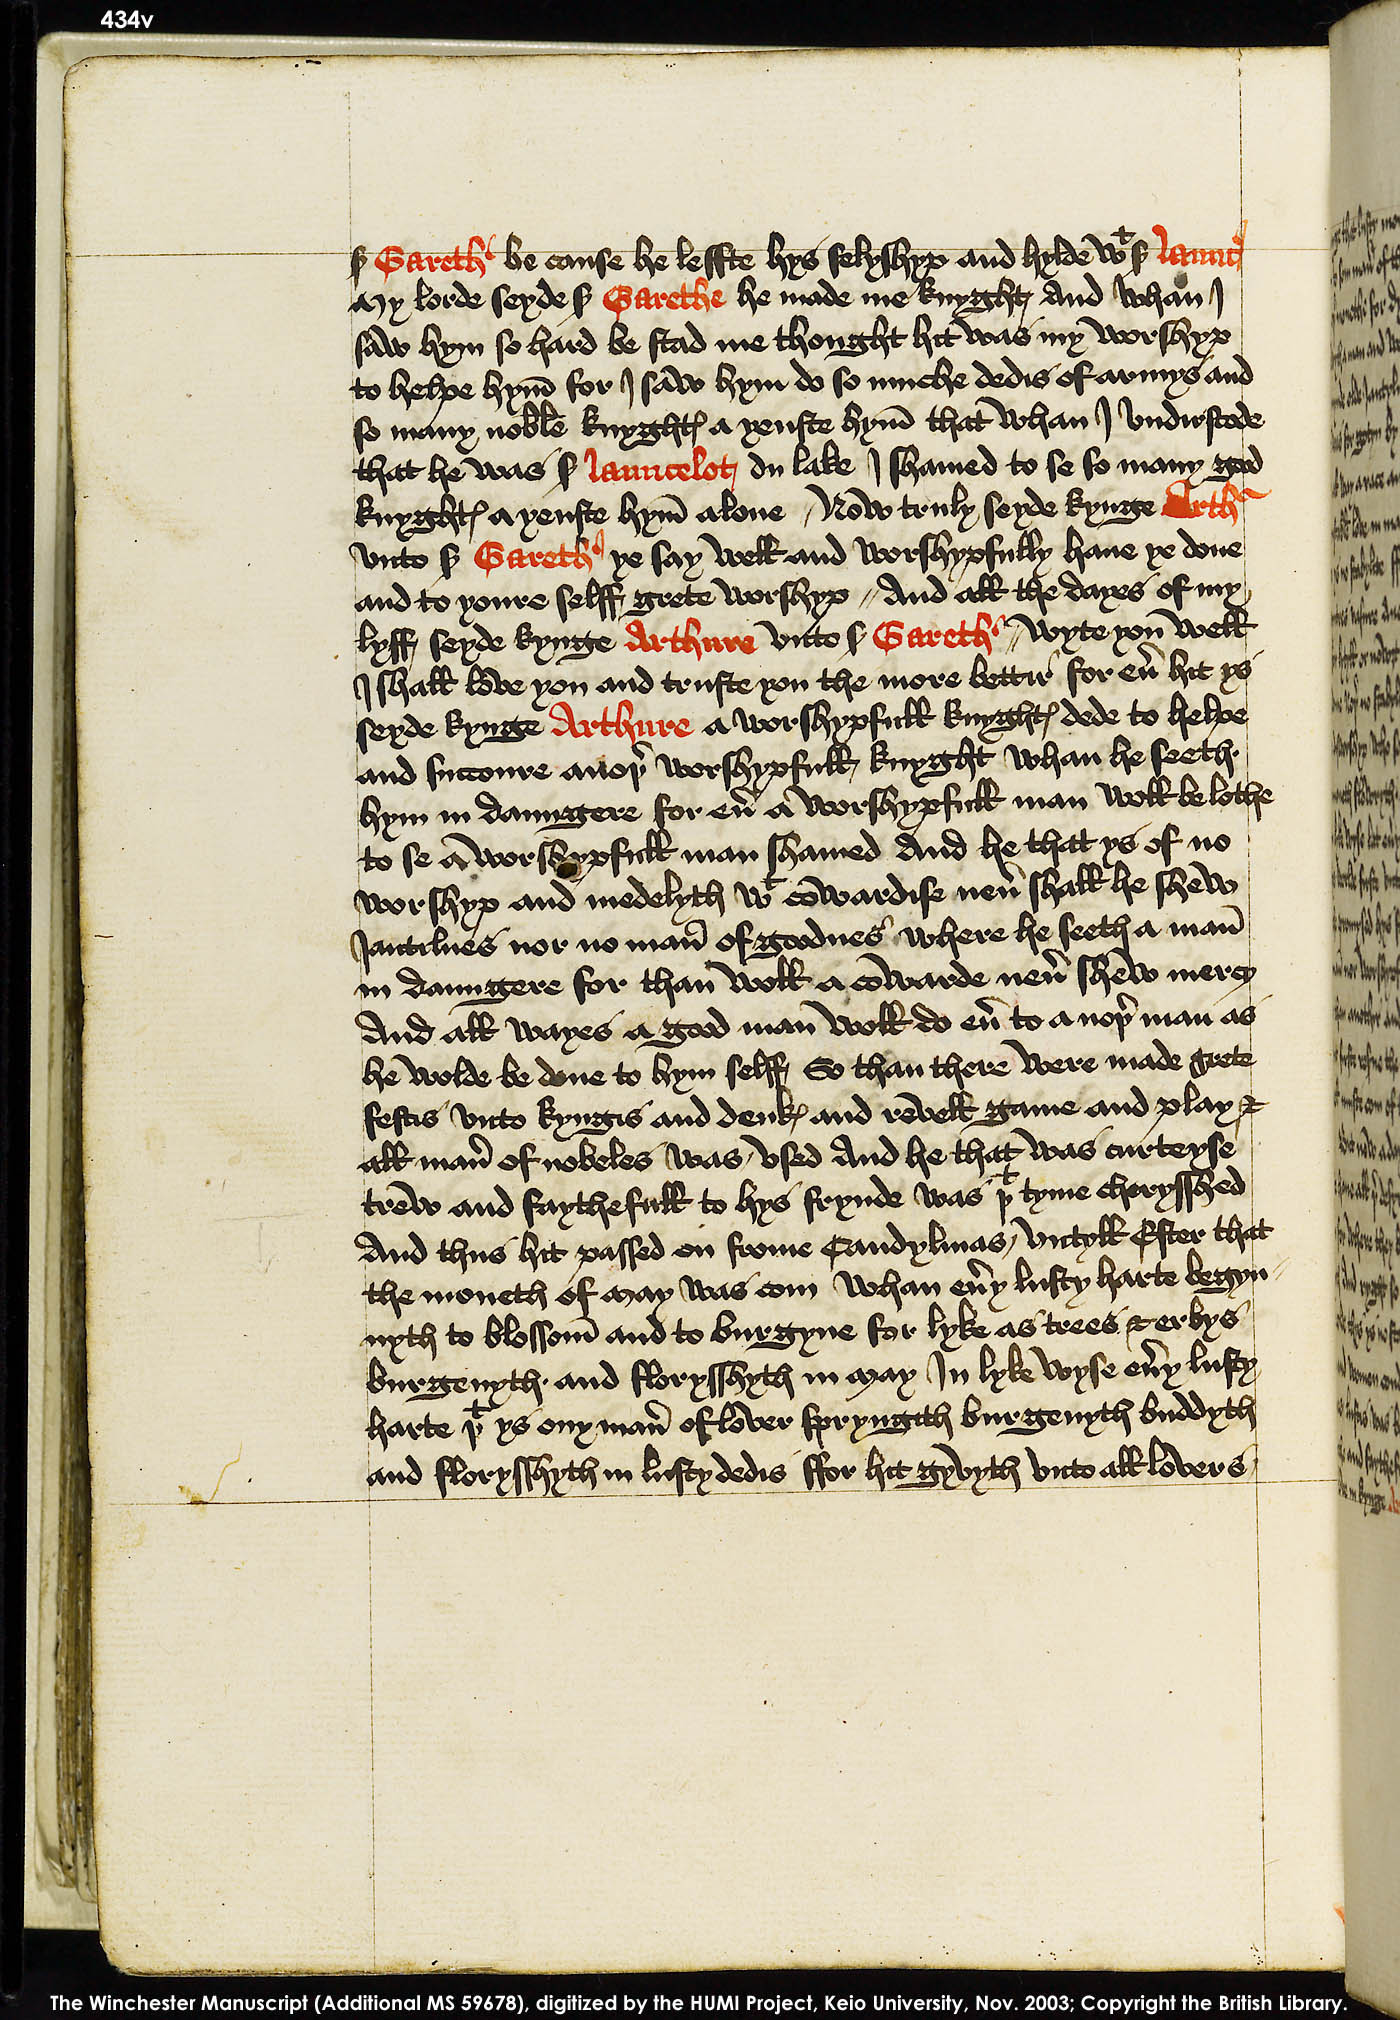 434v
s Gareth be cause he leffte hys felyshyp and hylde wt s Launc
My lorde seyde s Garethe he made me knyght And whan I
saw hym so hard be stad me thought hit was my worshyp
to helpe hym̄ for I saw hym do so muche dedis of armys and
so many noble knyghtes a yenste hym̄ that whan I undirstode
that he was s Launcelot du lake I shamed to se so many good
knyghtes a yenste hym̄ alone / Now truly seyde kynge Arthr
unto s Gareth ye say well and worshypfully have ye done
and to youre selff grete worshyp // And all the dayes of my
lyff seyde kynge Arthure unto s Gareth // Wyte you well
I shall love you and truste you the more bettir for eū hit ys
seyde kynge Arthure a worshypfull knyghtes dede to helpe
and succoure anoþr worshypfull knyght whan he seeth
hym in daungere for eū a worshypfull man woll be lothe
to se a worshypfull man shamed And he that ys of no
worshyp and medelyth wt cowardise neū shall he shew
Jantilnes nor no man̄ of goodnes where he seeth a man̄
in daungere for than woll a cowarde neū shew mercy
And all wayes a good man woll do eū to a noþr man as
he wolde be done to hym selff So than there were made grete
festis unto kyngis and deukes and revell game and play &
all man̄ of nobeles was used And he that was curteyse
trew and faythefull to hys frynde was þt tyme cherysshed
And thus hit passed on frome Candylmas untyll Ester that
the moneth of May was com whan eūy lusty harte begyn //
nyth to blossom̄ and to burgyne for lyke as trees & erbys
burgenyth and florysshyth in May In lyke wyse eūy lusty
harte þt ys ony man̄ of lover spryngith burgenyth buddyth
and florysshyth in lusty dedis ffor hit gyvyth unto all lovers
The Winchester Manuscript (Additional MS 59678), digitized by the HUMI Project, Keio University, Nov. 2003; Copyright the British Library.